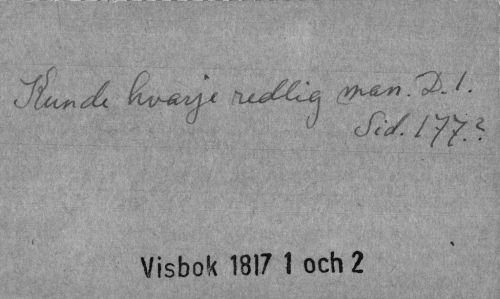 Kunde hvarje redlig man. D. 1.
Sid. 177.?
Visbok 1817 1 och 2